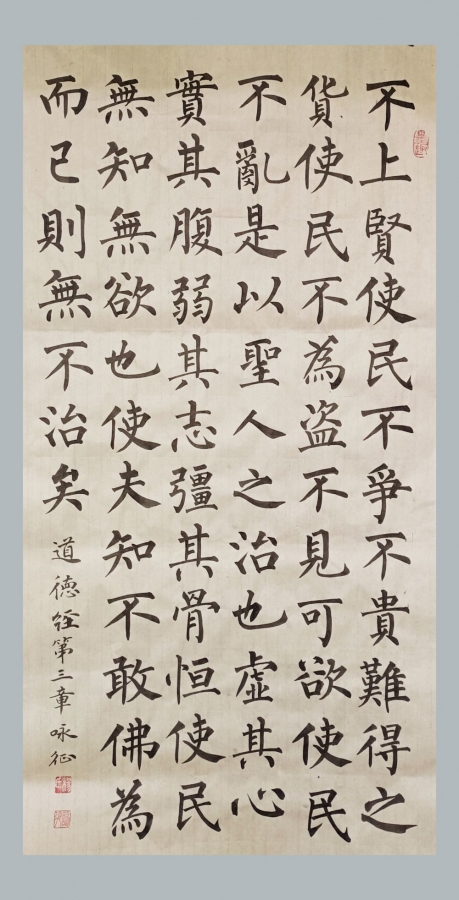 不上賢使民不爭不貴難得之
貨使民不為盜不見可欲使民
不亂是以聖人之治也虛其心
實其腹弱其志彊其骨恒使民
無知無欲也使夫知不敢佛為
而已則無不治矣
道德經第三章咏征